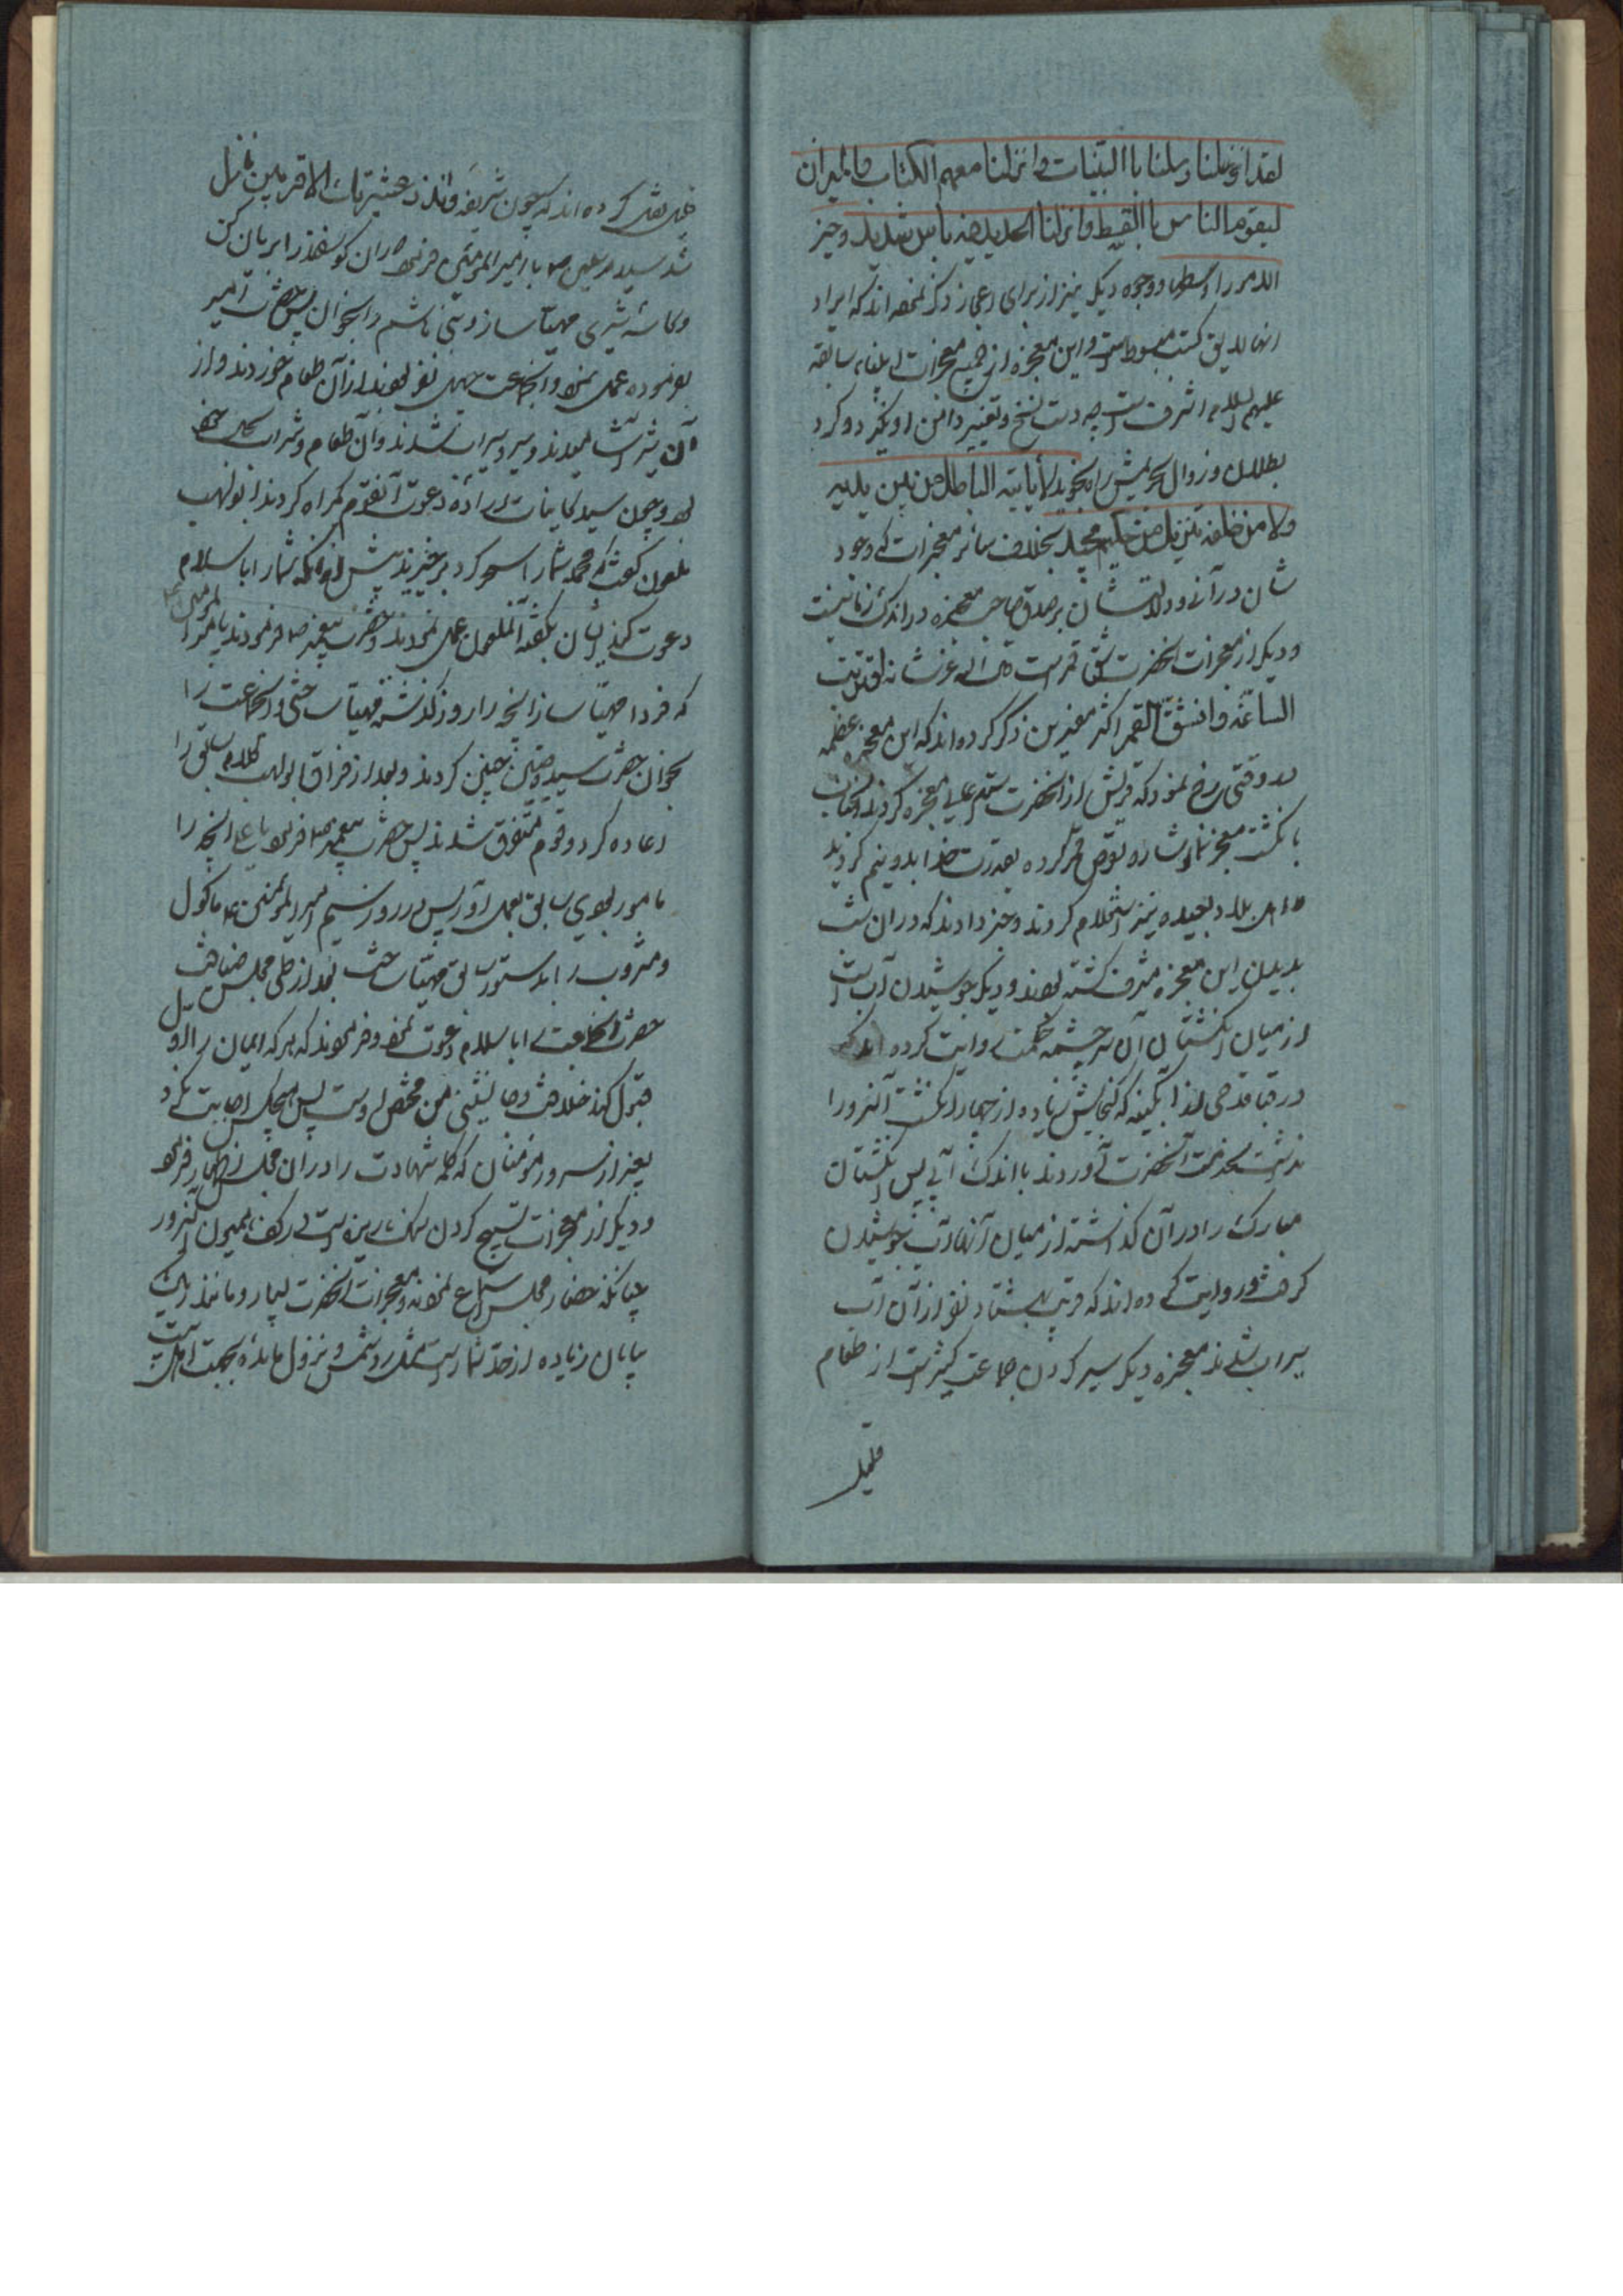 لقد ارسلنا رسلنا باالبینات و انزلنا معهم الکتاب والمیزان
لیقوم الناس باالقسط و انزلنا الحدید فیه باس شدید و خیر
الامور اوسطها و وجوه دیکر نیز از برای اعجاز ذکر نموده اند که ایراد
انها لایق کتب مبسوط است و این معجزه از جمیع معجزات انبیاء سابقه
علیهم السلام اشرف است چه دست نسخ و تغییر دامن او نکیرد و کرد
بطلان و زوال حریمش را نجوید لا یاتیه الباطل من بین یدیه
ولا من خلفه تنزیل من حکیم مجید بخلاف سائر معجزات که وجود
شان در آنی و دلالت شان بر صدق صاحب معجزه در اندک زمانیست
و دیکر از معجزات انحضرت شق قمر است قال الله عز شانه اقتربت
الساعة و انشق القمر اکثر مفسرین ذکر کرده اند که این معجزه عظمه
در وقتی رخ نمود که قریش از انحضرت استدعای معجزه کردند انجناب
بانکشت معجز نما اشاره بقرص قمر کرده بقدرت خدا بدو نیم کردید
و از اهل بلاد بعیده نیز استعلام کردند و خبر دادند که در ان شب
بدیدن این معجزه مشرف کشته بودند و دیکر جوشیدن آب است
از میان انکشتان آن سرچشمه حکمت روایت کرده اند که
در قبا قدحی از ابکینه که کنجایش زیاده از چهار انکشت آنسرور را
نداشت بخدمت آنحضرت آوردند با اندک آبی پس انکشتان
مبارک را در آن کذاشته از میان آنها آب جوشیدن
کرفت و روایت کرده اند که قریب بهشتاد نفر از آن آب
سیراب شدند معجزه دیکر سیر کردن جماعت کثیر است از طعام
قلیل
قلیل نقل کرده اند که چون شریفه و انذر عشیرتک الاقربین نازل
شد سید مرسلین ص با امیر المومنین فرمود ران کوسفندی را بریان کن
و کاسه شیری مهیا ساز و بنی هاشم را بخوان پس حضرت امیر
بفرموده عمل نمود و انجماعت چهل نفر بودند از آن طعام خوردند و از
آن شیر آشامیدند و سیر و سیراب شدند و آن طعام و شراب بحال خود
بود و چون سید کاینات اراده دعوت آنقوم کمراه کردند ابولهب
ملعون کفت که محمد شما را سحر کرد برخیزید پیش از انکه شما را باسلام
دعوت کند ایشان بکفته آنملعون عمل نمودند و حضرت پیغمبر ص فرمودند یا امیر المومنین
که فردا مهیا ساز انچه را روز کذشته مهیا ساختی و انجماعت را
بخوان حضرت سید وصیین چنین کردند و بعد از فراق ابولهب کلام سابق را
اعاده کرد و قوم متفرق شدند پس حضرت پیغمبر ص فرمود یا علی انچه را
مامور بودی سابق بعمل آور پس در روز سیم امیر المومنین ع ماکول
و مشروب را بدستور سابق مهیا ساخت بعد از طی مجلس ضیافت
حضرت انجماعت را باسلام دعوت نمود و فرمودند که هر که ایمان را اول
قبول کند خلافت و جانشینی من مختص اوست پس هیچکس اجابت نکرد
بغیر از سرور مومنان که کلمه شهادت را در ان مجلس اظهار فرمود
و دیکر از معجزات تسبیح کردن سنک ریزه است در کف میمون آنسرور
چنانکه حضار مجلس استماع نمودند و معجزات انحضرت بسیار و مانند
بپایان زیاده از حد شمار است مثل رد شمس و نزول مائده بجهت اهل بیت